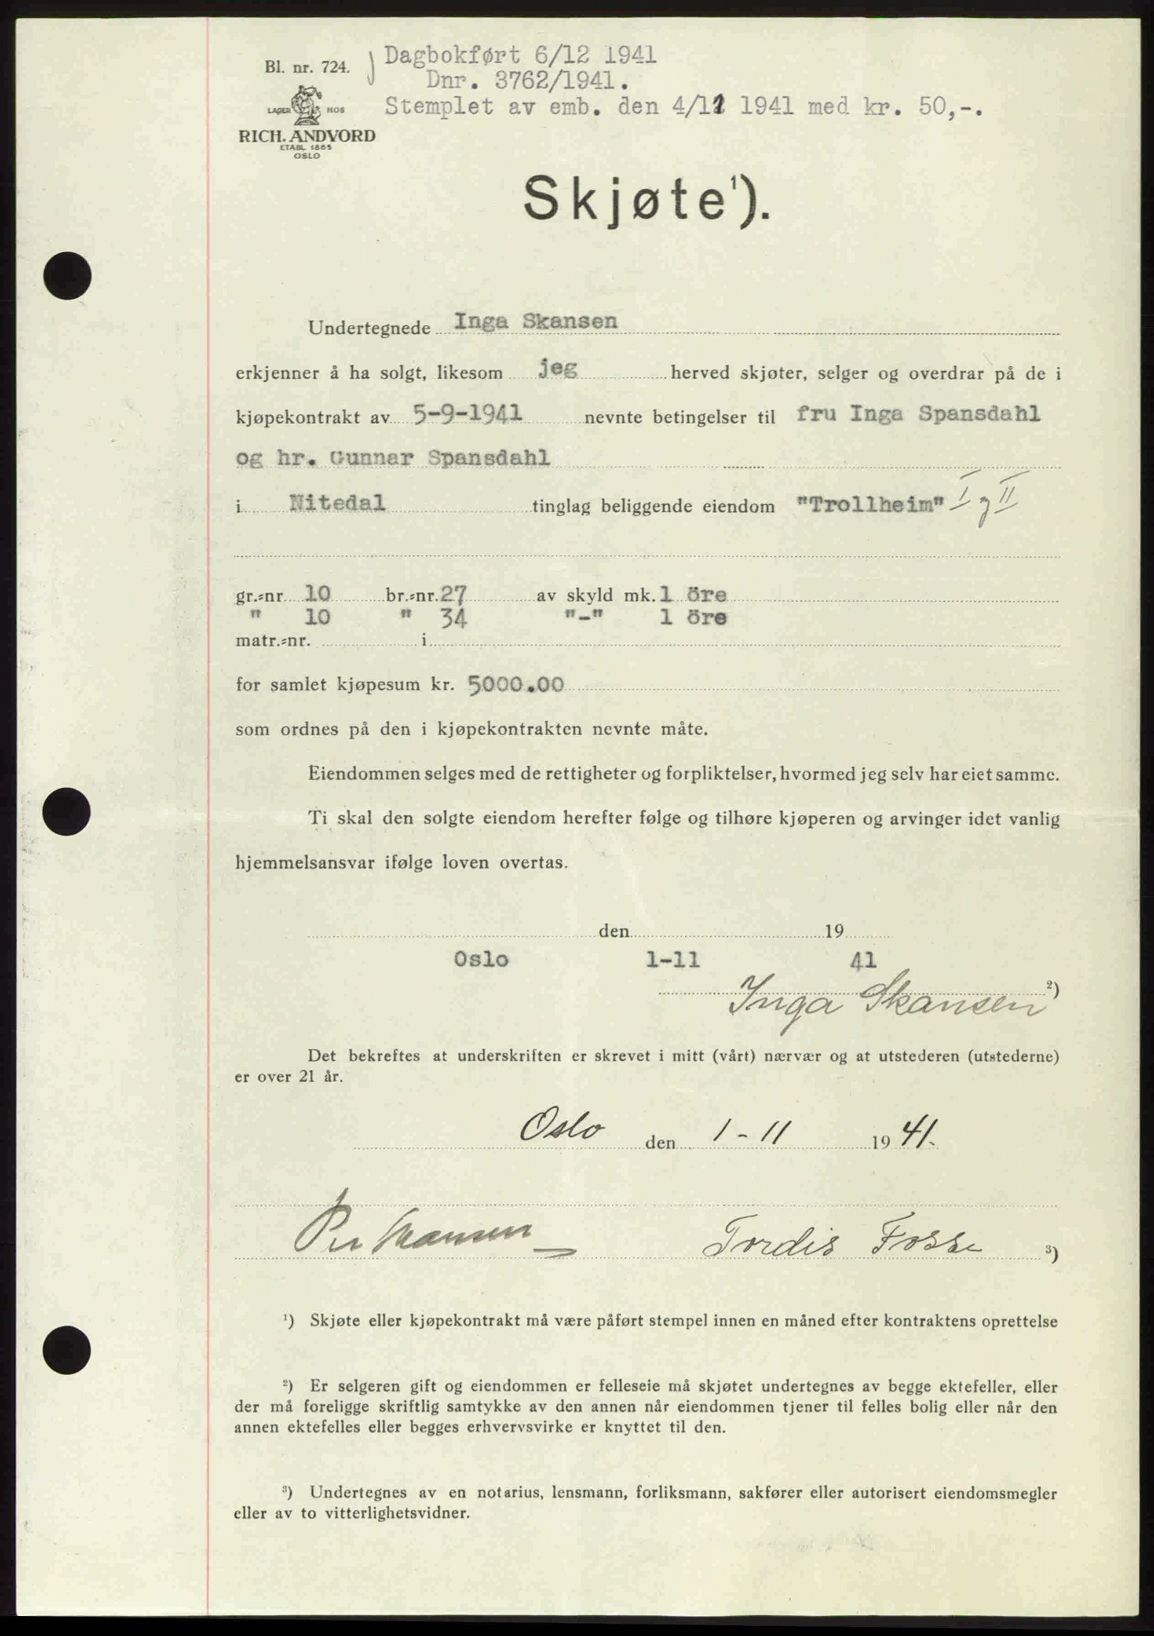 Bl. nr. 724.
LAGER HOS
RICH. ANDVORD
ETABL 1865
OSLO
Dagbokført 6/12 1941
Dnr. 3762/1941.
Stemplet av emb. den 4/11 1941 med kr. 50,-.
Skjøte¹).
Undertegnede Inga Skansen
erkjenner å ha solgt, likesom jeg herved skjøter, selger og overdrar på de i
kjøpekontrakt av 5-9-1941 nevnte betingelser til fru Inga Spansdahl
og hr. Gunnar Spansdahl
i Nitedal tinglag beliggende eiendom "Trollheim" I og II
gr.-nr 10 br.-nr. 27 av skyld mk. 1 öre
" 10 " 34 "-" 1 öre
matr.-nr. i
for samlet kjøpesum kr. 5000.00
som ordnes på den i kjøpekontrakten nevnte måte.
Eiendommen selges med de rettigheter og forpliktelser, hvormed jeg selv har eiet samme.
Ti skal den solgte eiendom herefter følge og tilhøre kjøperen og arvinger idet vanlig
hjemmelsansvar ifølge loven overtas.
den 19
Oslo 1-11 41
Inga Skansen ²)
Det bekreftes at underskriften er skrevet i mitt (vårt) nærvær og at utstederen (utstederne)
er over 21 år.
Oslo den 1-11 1941.
Per Skansen Tordis Fosse ³)
¹) Skjøte eller kjøpekontrakt må være påført stempel innen en måned efter kontraktens oprettelse
²) Er selgeren gift og eiendommen er felleseie må skjøtet undertegnes av begge ektefeller, eller
der må foreligge skriftlig samtykke av den annen når eiendommen tjener til felles bolig eller når den
annen ektefelles eller begges erhvervsvirke er knyttet til den.
³) Undertegnes av en notarius, lensmann, forliksmann, sakfører eller autorisert eiendomsmegler
eller av to vitterlighetsvidner.